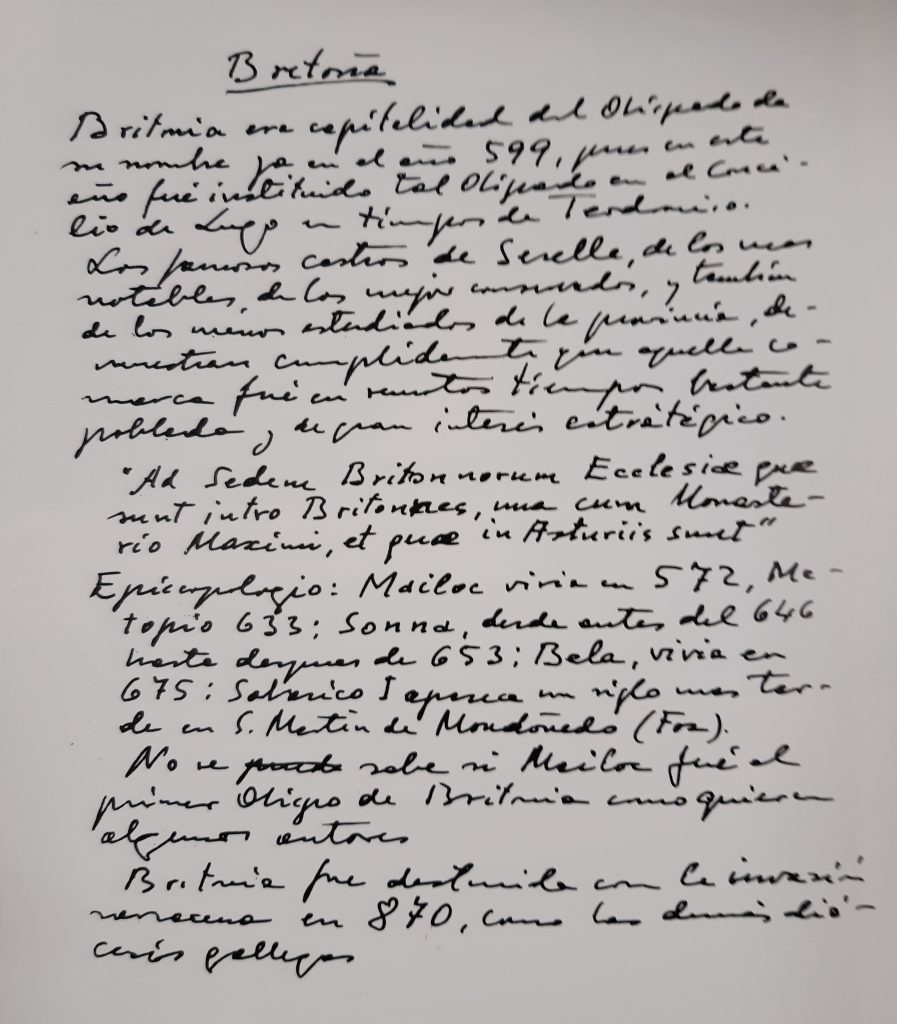 Bretoña
Britonia era capitalidad del Obispado de
su nombre ya en el año 599, pues en este
año fué instituido tal Obispado en el Conci-
lio de Lugo en tiempos de Teodomiro.
Los famosos castros de Serella, de los mas
notables, de los mejor conservados, y también
de los menos estudiados de la provincia, de-
muestran cumplidamente que aquella co-
marca fué en remotos tiempos bastante
poblada y de gran interés estratégico.
"Ad Sedem Britonnorum Ecclesiæ quæ
sunt intro Britones, una cum Monaste-
rio Maximi, et quæ in Asturiis sunt"
Episcopologio: Mailoc vivia en 572, Me-
topio 633; Sonna, desde antes del 646
hasta despues de 653; Bela, vivia en
675; Sabarico I aparece un siglo mas tar-
de en S. Martin de Mondoñedo (Foz).
No se sabe si Mailoc fué el
primer Obispo de Britonia como quieren
algunos autores
Britonia fue destruida con la invasión
sarracena en 870, como las demás dió-
cesis gallegas